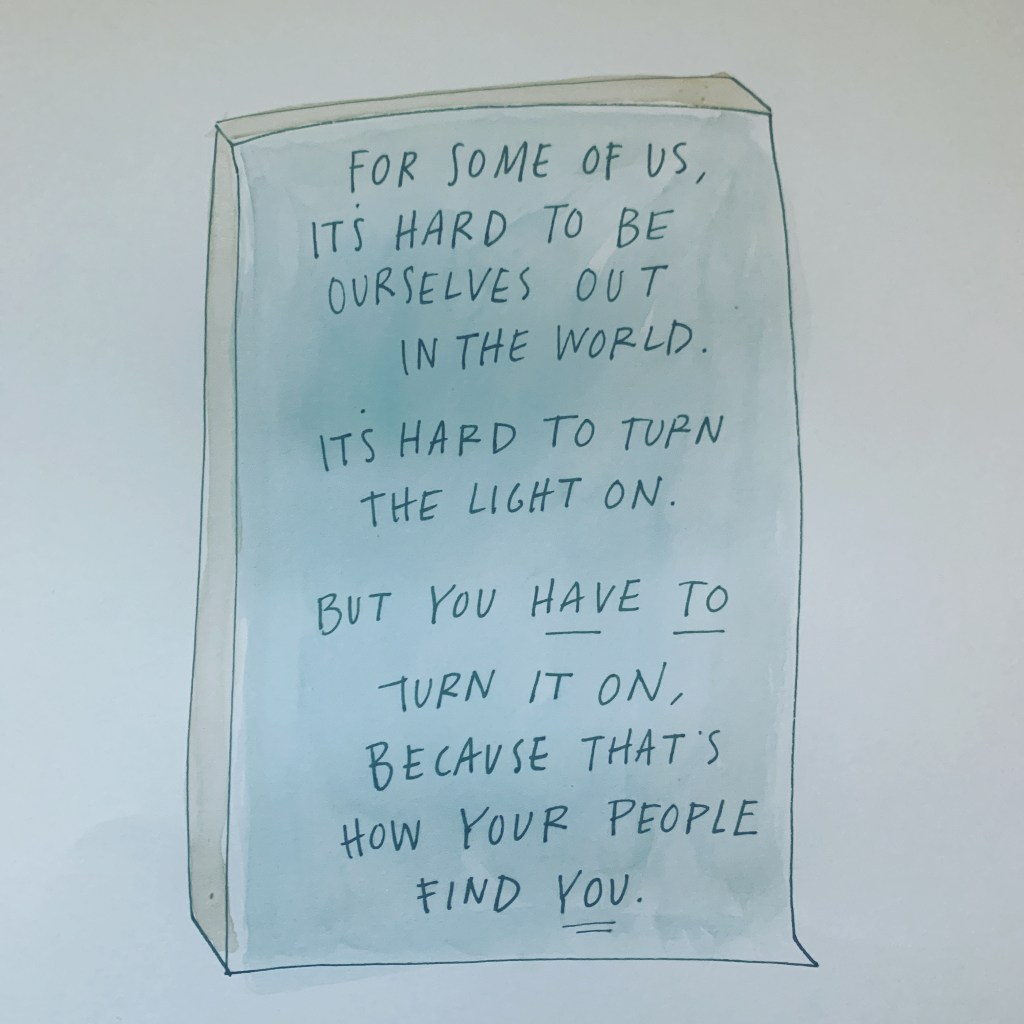 FOR SOME OF US,
IT'S HARD TO BE
OURSELVES OUT
IN THE WORLD.
IT'S HARD TO TURN
THE LIGHT ON.
BUT YOU HAVE TO
TURN IT ON,
BECAUSE THAT'S
HOW YOUR PEOPLE
FIND YOU.